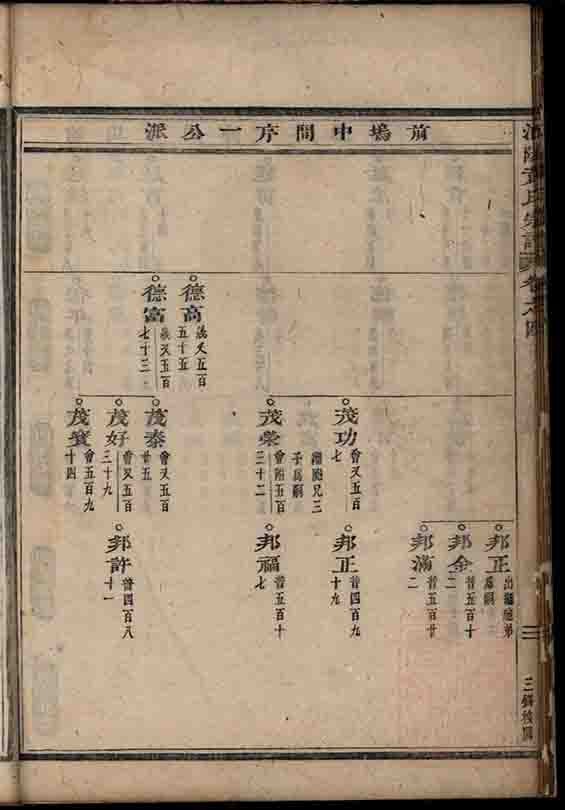 前塢中間序一公派
氏宗譜
卷之四
德高
義又五百
五十五
德富
義又五百
七十三
茂功
會又五百
七
兄三
子爲嗣
茂榮
會附五百
三十二
茂泰
會又五百
廿五
茂好
會又五百
三十九
茂發
會五百九
十四
邦正
出繼
弟
爲嗣
邦金
普五百十
二
邦滿
普五百廿
二
邦正
普四百九
十九
邦福
普五百十
七
邦許
普四百八
十一
三